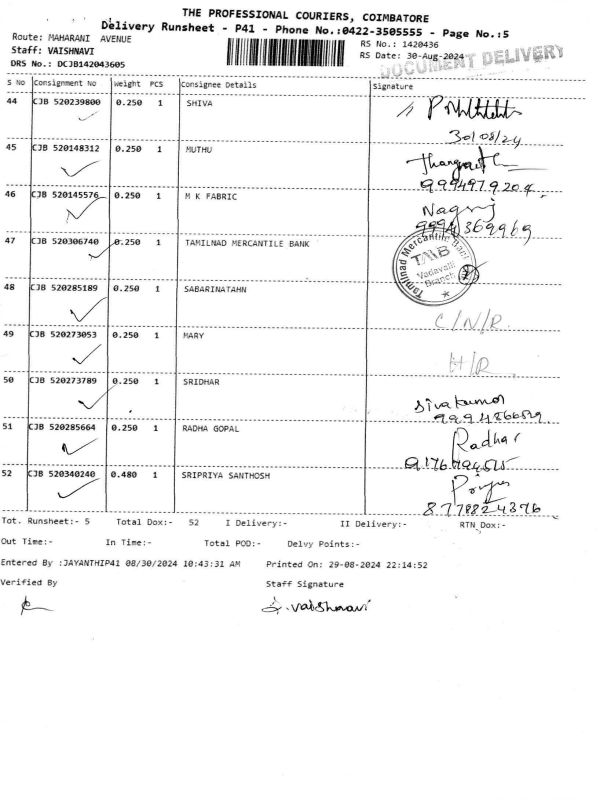 THE PROFESSIONAL COURIERS, COIMBATORE
Delivery Runsheet - P41 - Phone No.:0422-3505555 - Page No.:5
Route: MAHARANI AVENUE
RS No.: 1420436
Staff: VAISHNAVI
RS Date: 30-Aug-2024
DOCUMENT DELIVERY
DRS No.: DCJB142043605
S No Consignment No Weight PCS Consignee Details Signature
44 CJB 520239800 0.250 1 SHIVA
30/08/24
45 CJB 520148312 0.250 1 MUTHU
9994979204
46 CJB 520145576 0.250 1 M K FABRIC Nagraj
9994369969
47 CJB 520306740 0.250 1 TAMILNAD MERCANTILE BANK
Tamilnad Mercantile Bank
TMB
Vadavalli
Branch
48 CJB 520285189 0.250 1 SABARINATAHN
C/N/R
49 CJB 520273053 0.250 1 MARY
H/R
50 CJB 520273789 0.250 1 SRIDHAR
Sivakumar
51 CJB 520285664 0.250 1 RADHA GOPAL Radhar
52 CJB 520340240 0.480 1 SRIPRIYA SANTHOSH
8778824376
Tot. Runsheet:- 5 Total Dox:- 52 I Delivery:- II Delivery:- RTN Dox:-
Out Time:- In Time:- Total POD:- Delvy Points:-
Entered By :JAYANTHIP41 08/30/2024 10:43:31 AM Printed On: 29-08-2024 22:14:52
Verified By Staff Signature
S. Vaishnavi